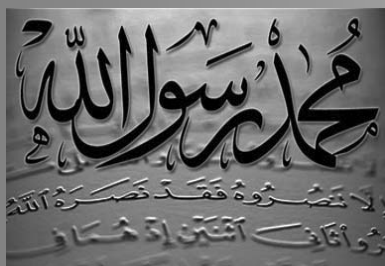 محمد رسول الله
إلا تنصروه فقد نصره الله
ثاني اثنين إذ هما في